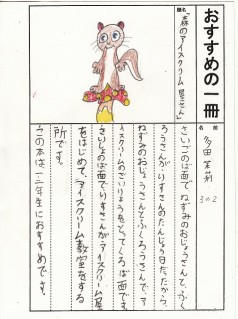 おすすめの一冊
題名
「森のアイスクリーム屋さん」
名前
多田 茉莉
3の2
さいごのば面でねずみのおじょうさんと、ふく
ろうさんが、りすさんのたんじょう日だったから、
ねずみのおじょうさんとふくろうさんで、ア
イスクリームのざいりょうをとってくるば面です。
さいしょのば面でりすさんがアイスクリーム屋
をはじめて、アイスクリーム教室をする
所です。
この本は一二年生におすすめです。